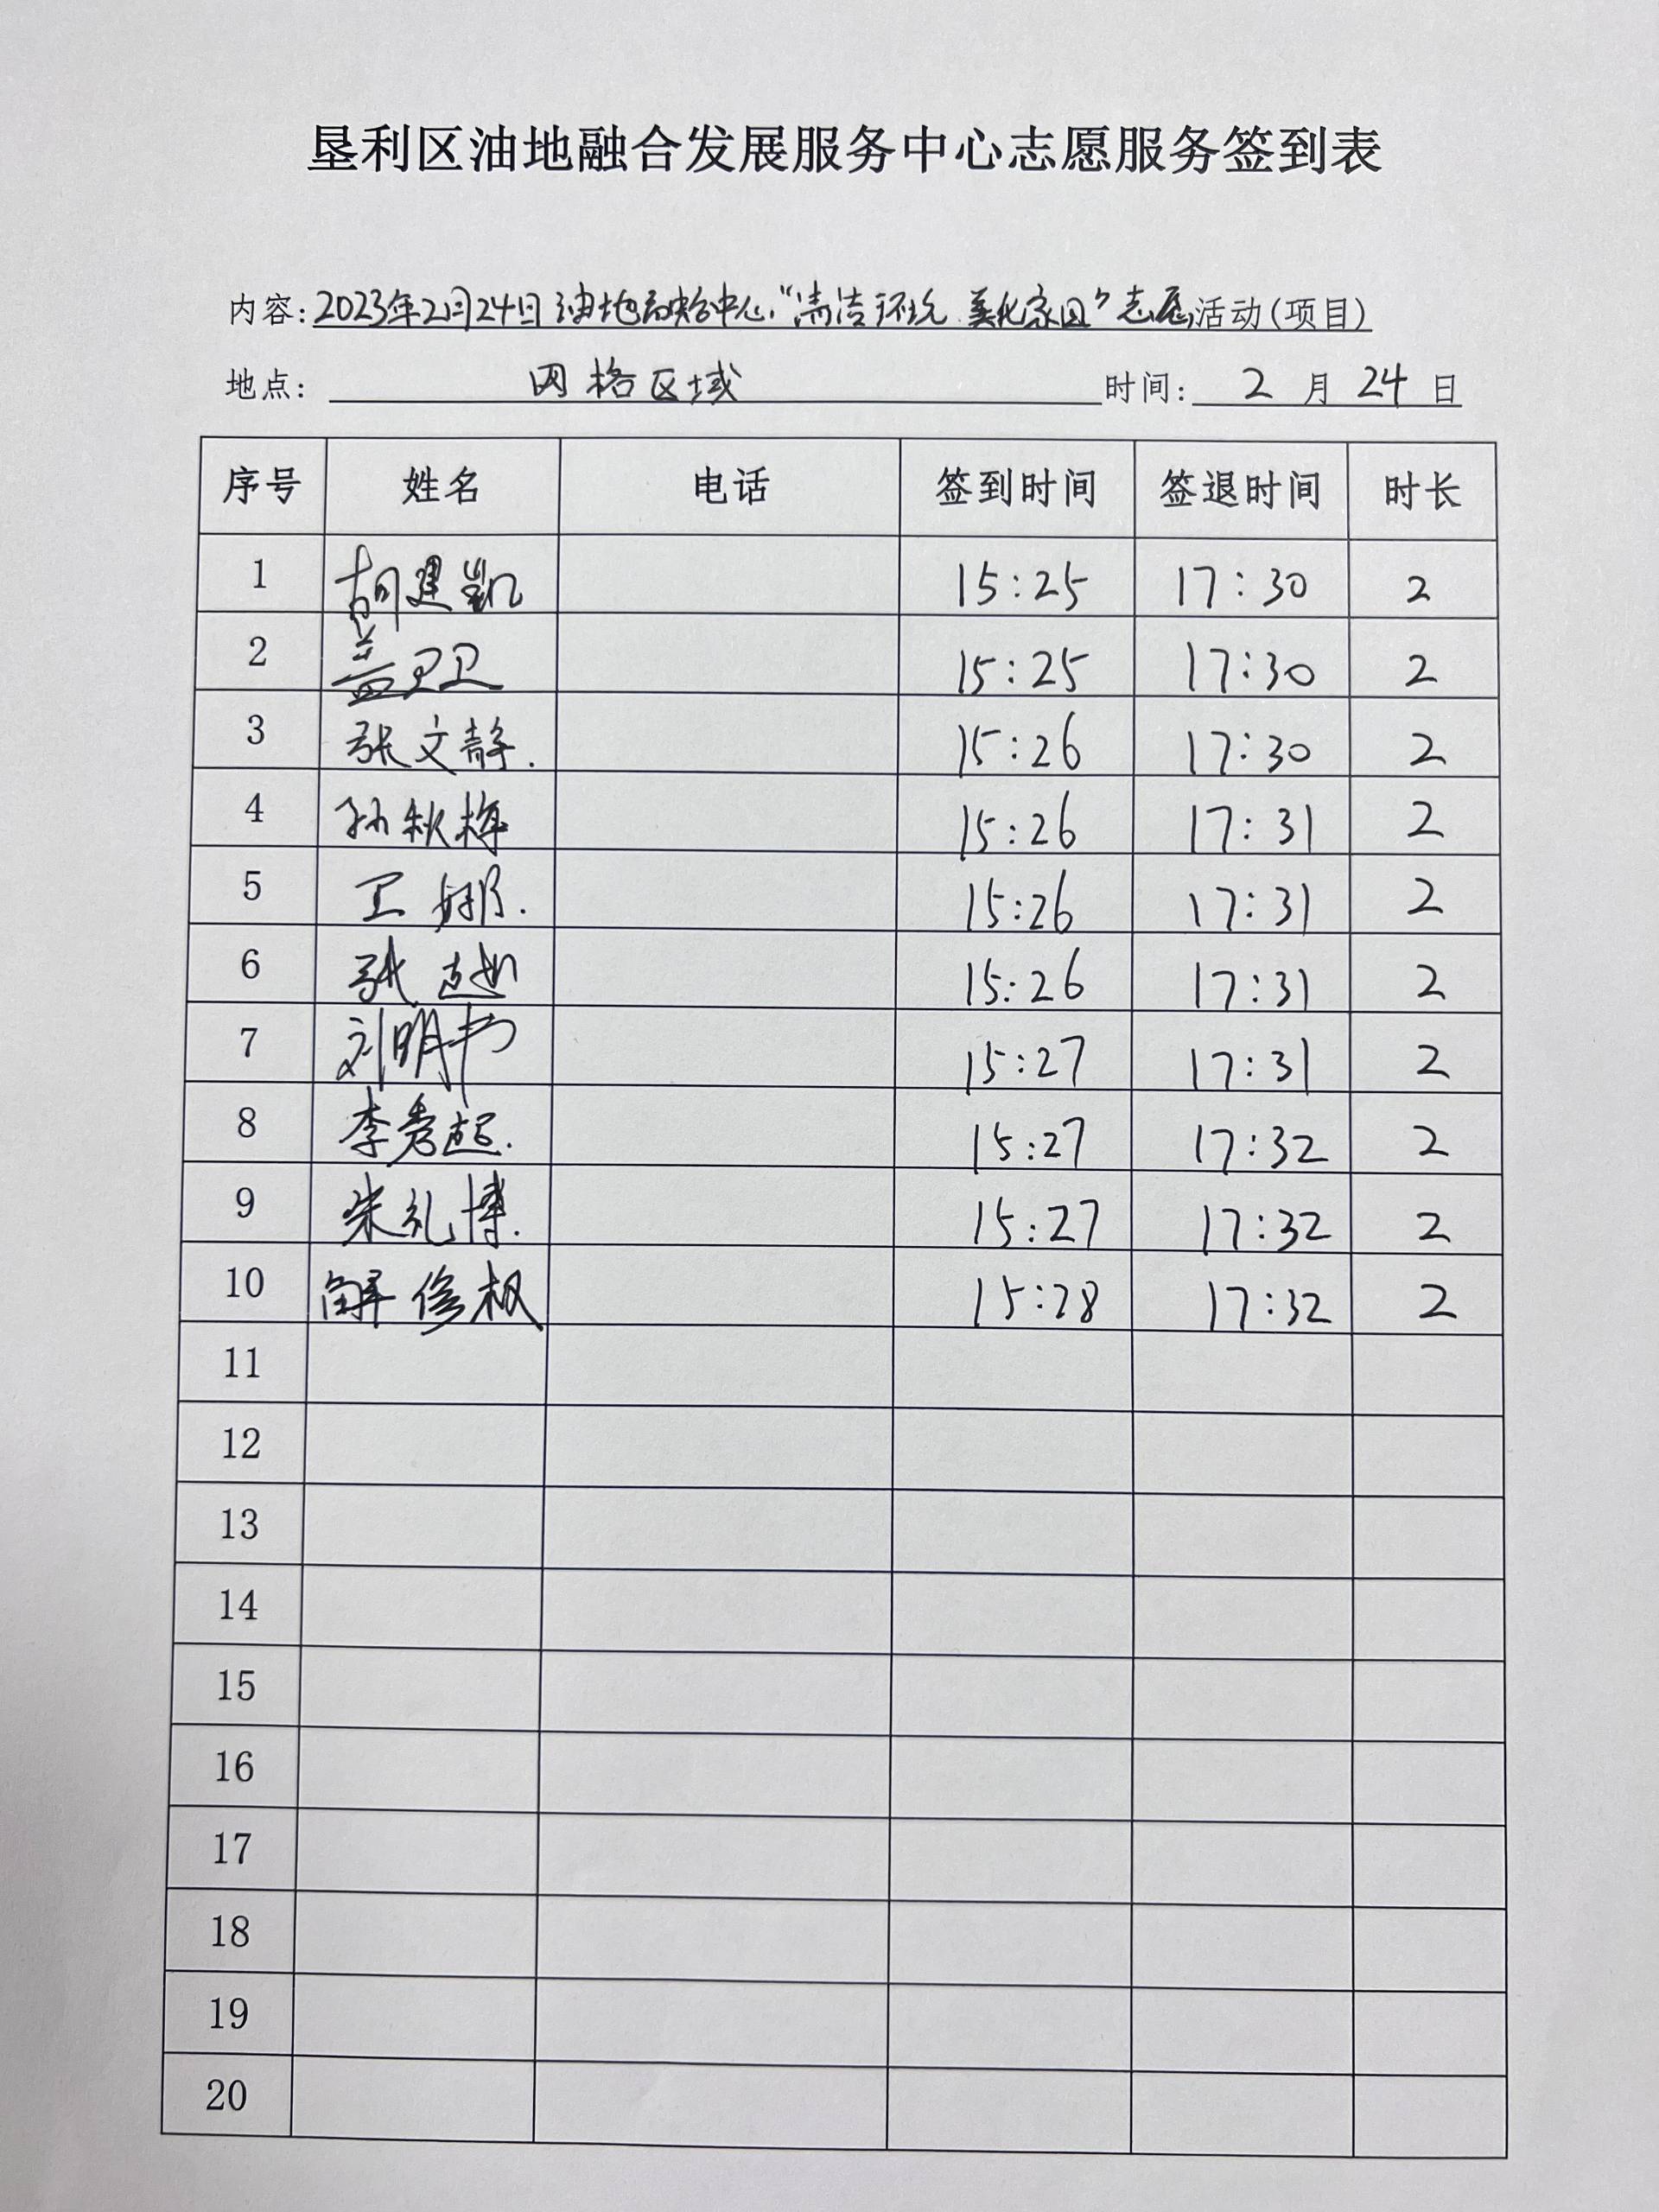 垦利区油地融合发展服务中心志愿服务签到表
内容:2023年2月24日油地融合中心"清洁环境 美化家园"志愿活动(项目)
地点: 网格区域 时间: 2 月 24 日
序号 姓名 电话 签到时间 签退时间 时长
1 胡建凯 15:25 17:30 2
2 盖卫卫 15:25 17:30 2
3 张文静. 15:26 17:30 2
4 孙秋梅 15:26 17:31 2
5 王娜. 15:26 17:31 2
6 张 15:26 17:31 2
7 刘明书 15:27 17:31 2
8 李秀超. 15:27 17:32 2
9 宋礼博. 15:27 17:32 2
10 解俊权 15:28 17:32 2
11
12
13
14
15
16
17
18
19
20